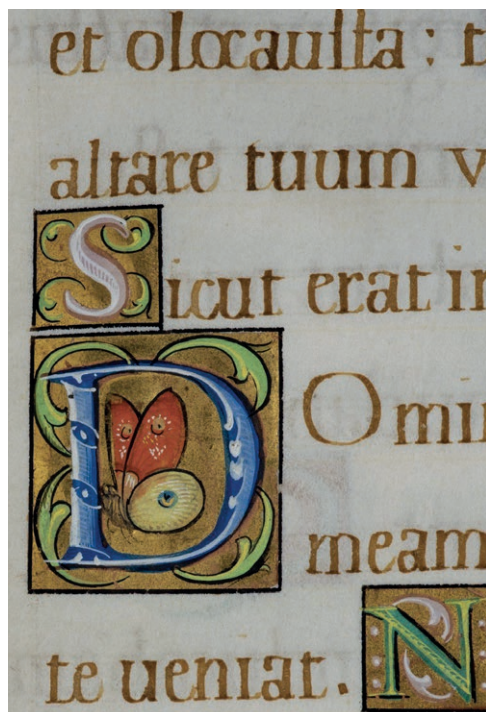 et olocausta : t
altare tuum v
Sicut erat in
DOmi
meam
te ueniat. N